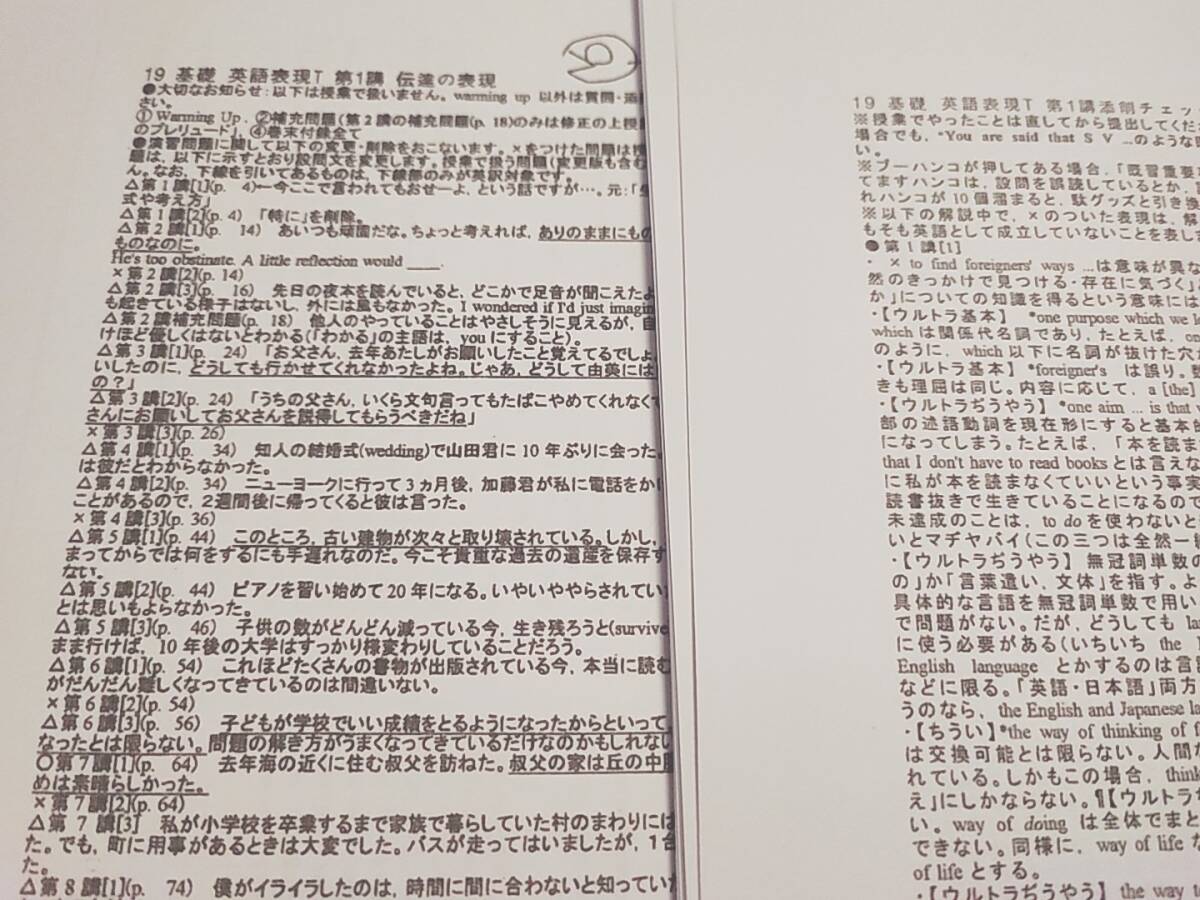 19 基礎 英語表現T 第1講 伝達の表現
●大切なお知らせ：以下は授業で扱いません。warming up 以外は質問・添
さい。
①Warming Up．②補充問題（第2講の補充問題(p. 18)のみは修正の上授
のプレリュード」，④巻末付録全て
●演習問題に関して以下の変更・削除をおこないます。×をつけた問題は授
題は，以下に示すとおり設問文を変更します。授業で扱う問題（変更版も含む
ん。なお，下線を引いてあるものは，下線部のみが英訳対象です。
△第1講[1](p. 4)←今ここで言われてもおせーよ，という話ですが…。元：「生
式や考え方」
△第1講[2](p. 4) 「特に」を削除。
△第2講[1](p. 14) あいつも頑固だな。ちょっと考えれば，ありのままにもの
ものなのに。
He's too obstinate. A little reflection would ____.
×第2講[2](p. 14)
△第2講[3](p. 16) 先日の夜本を読んでいると，どこかで足音が聞こえたよ
も起きている様子はないし，外には風もなかった。I wondered if I'd just imagin
△第2講補充問題(p. 18) 他人のやっていることはやさしそうに見えるが，自
けほど優しくはないとわかる（「わかる」の主語は，youにすること）。
△第3講[1](p. 24) 「お父さん，去年あたしがお願いしたこと覚えてるでしょ。
いしたのに，どうしても行かせてくれなかったよね。じゃあ，どうして由美には
の？」
△第3講[2](p. 24) 「うちの父さん，いくら文句言ってもたばこやめてくれなくて
さんにお願いしてお父さんを説得してもらうべきだね」
×第3講[3](p. 26)
△第4講[1](p. 34) 知人の結婚式(wedding)で山田君に10年ぶりに会った。
は彼だとわからなかった。
△第4講[2](p. 34) ニューヨークに行って3ヵ月後，加藤君が私に電話をかけ
ことがあるので，2週間後に帰ってくると彼は言った。
×第4講[3](p. 36)
△第5講[1](p. 44) このところ，古い建物が次々と取り壊されている。しかし，
まってからでは何をするにも手遅れなのだ。今こそ貴重な過去の遺産を保存す
ない。
△第5講[2](p. 44) ピアノを習い始めて20年になる。いやいややらされてい
とは思いもよらなかった。
△第5講[3](p. 46) 子供の数がどんどん減っている今，生き残ろうと(survive
まま行けば，10年後の大学はすっかり様変わりしていることだろう。
△第6講[1](p. 54) これほどたくさんの書物が出版されている今，本当に読む
がだんだん難しくなってきているのは間違いない。
×第6講[2](p. 54)
△第6講[3](p. 56) 子どもが学校でいい成績をとるようになったからといって
なったとは限らない。問題の解き方がうまくなってきているだけなのかもしれない
○第7講[1](p. 64) 去年海の近くに住む叔父を訪ねた。叔父の家は丘の中腹
めは素晴らしかった。
×第7講[2](p. 64)
△第7講[3] 私が小学校を卒業するまで家族で暮らしていた村のまわりには
た。でも，町に用事があるときは大変でした。バスが走ってはいましたが，1台
た。
△第8講[1](p. 74) 僕がイライラしたのは，時間に間に合わないと知ってい
19 基礎 英語表現T 第1講添削チェッ
※授業でやったことは直してから提出してくだ
場合でも，*You are said that S V ...のような
い。
※ブーハンコが押してある場合，「既習重要
てますハンコは，設問を誤読しているとか，
れハンコが10個溜まると，駄グッズと引き換
※以下の解説中で，×のついた表現は，解
もそも英語として成立していないことを表し
●第1講[1]
・ × to find foreigners' ways ...は意味が異な
然のきっかけで見つける・存在に気づく」
か」についての知識を得るという意味には
・【ウルトラ基本】 *one purpose which we le
whichは関係代名詞であり，たとえば，on
のように，which以下に名詞が抜けた穴
・【ウルトラ基本】 *foreigner's は誤り。
きも理屈は同じ。内容に応じて，a [the]
・【ウルトラぢうやう】 *one aim ... is that
部の述語動詞を現在形にすると基本的
になってしまう。たとえば，「本を読ま
that I don't have to read booksとは言えな
に私が本を読まなくていいという事実
読書抜きで生きていることになるので
未達成のことは，to doを使わないと
いとマヂヤバイ（この三つは全然一緒
・【ウルトラぢうやう】 無冠詞単数の
の」か「言葉遣い，文体」を指す。よ
具体的な言語を無冠詞単数で用い
で問題がない。だが，どうしても la
に使う必要がある（いちいち the
English language とかするのは言語
などに限る。「英語・日本語」両方
うのなら，the English and Japanese la
・【ちうい】 *the way of thinking of f
は交換可能とは限らない。人間な
れている。しかもこの場合，think
え」にしかならない。¶【ウルトラぢ
い。way of doing は全体でまと
できない。同様に，way of life な
of life とする。
・【ウルトラぢうやう】 the way to